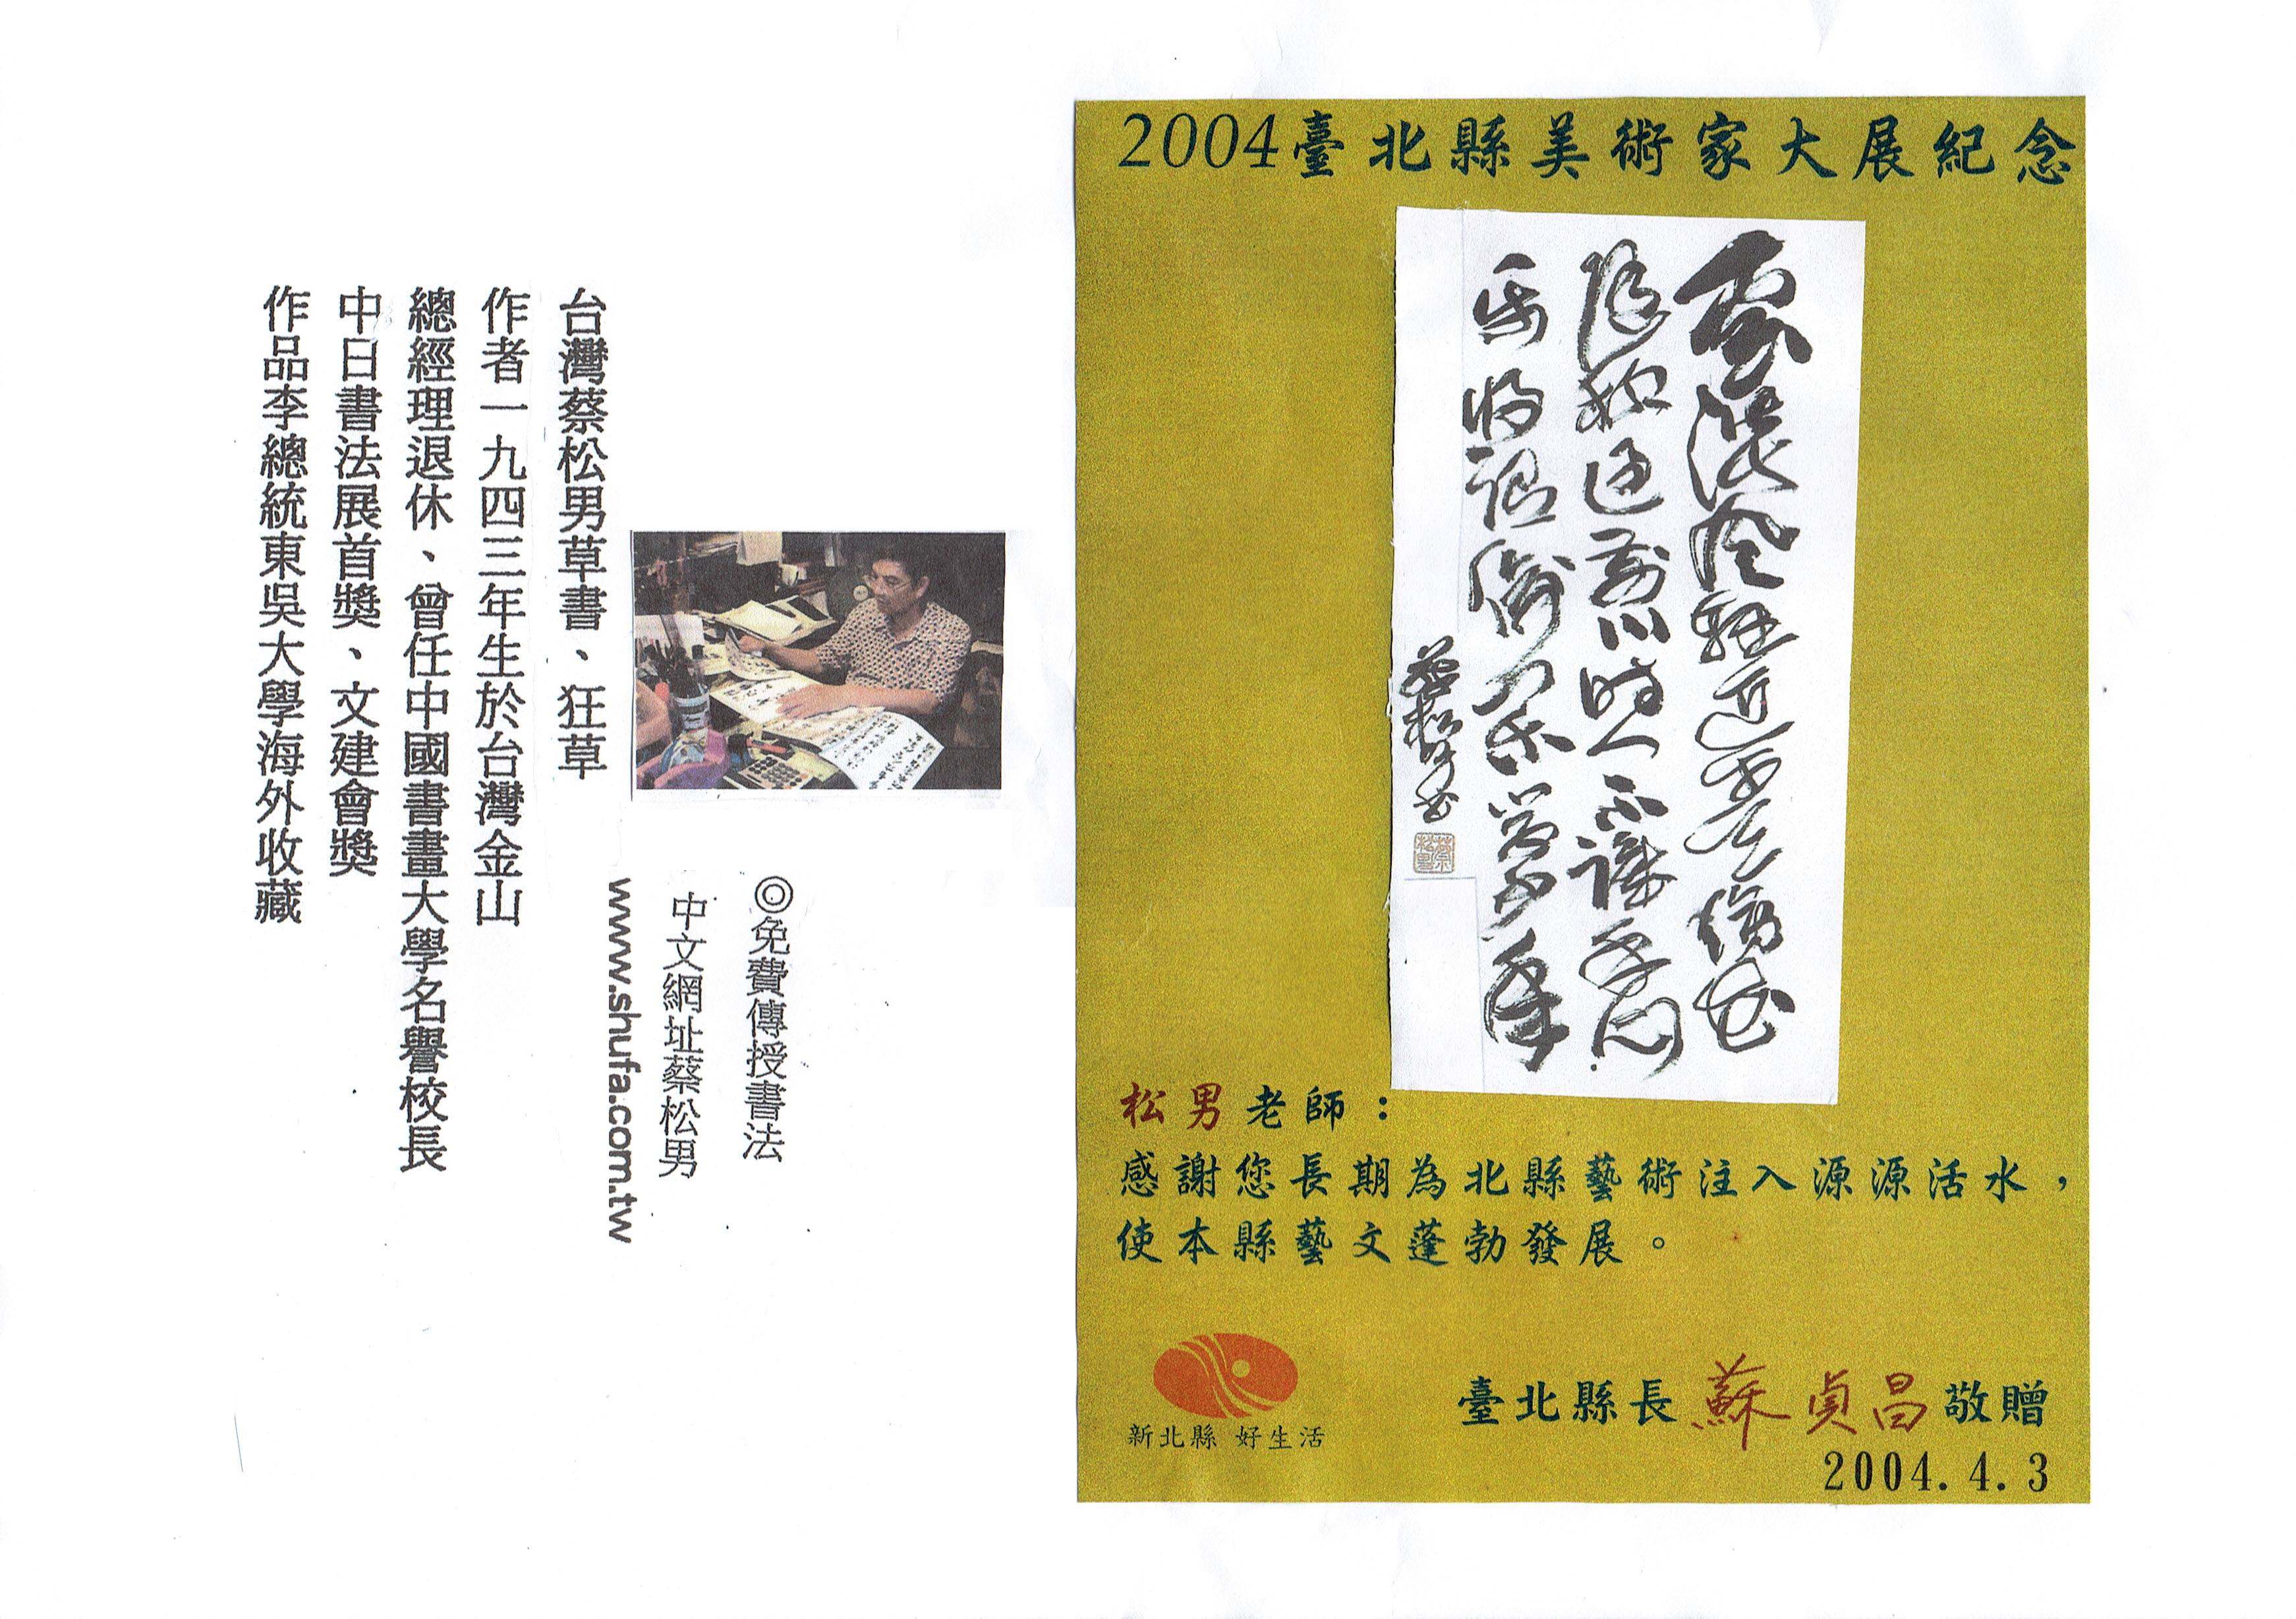 2004臺北縣美術家大展紀念
雲淡風輕近午天傍花
隨柳過前川時人不識予心
樂將謂偷閒學少年
蔡松男書
蔡松男
松男老師：
感謝您長期為北縣藝術注入源源活水，
使本縣藝文蓬勃發展。
新北縣 好生活
臺北縣長蘇貞昌敬贈
2004.4.3
◎免費傳授書法
中文網址蔡松男
www.shufa.com.tw
台灣蔡松男草書、狂草
作者一九四三年生於台灣金山
總經理退休、曾任中國書畫大學名譽校長
中日書法展首獎、文建會獎
作品李總統東吳大學海外收藏